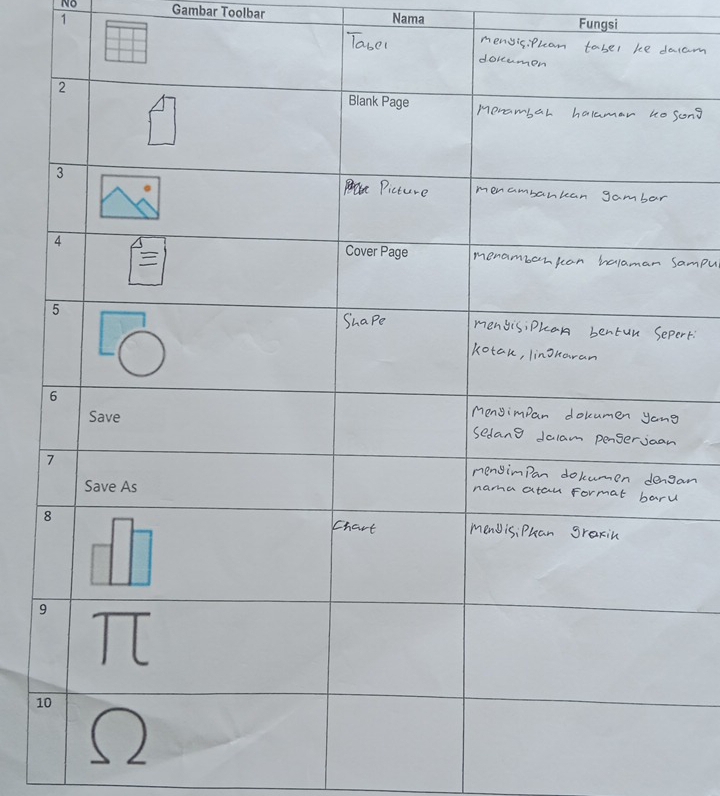 No Gambar Toolbar Nama Fungsi
1 Tabel menyisipkan tabel ke dalam
dokumen
2 Blank Page Menambah halaman kosong
3 Picture menambahkan gambar
4 Cover Page menambahkan halaman sampul
5 Shape menyisipkan bentuk seperti
kotak, lingkaran
6 Save Menyimpan dokumen yang
sedang dalam pengerjaan
7 Save As menyimpan dokumen dengan
nama atau format baru
8 Chart menyisipkan grafik
9 π
10 Ω